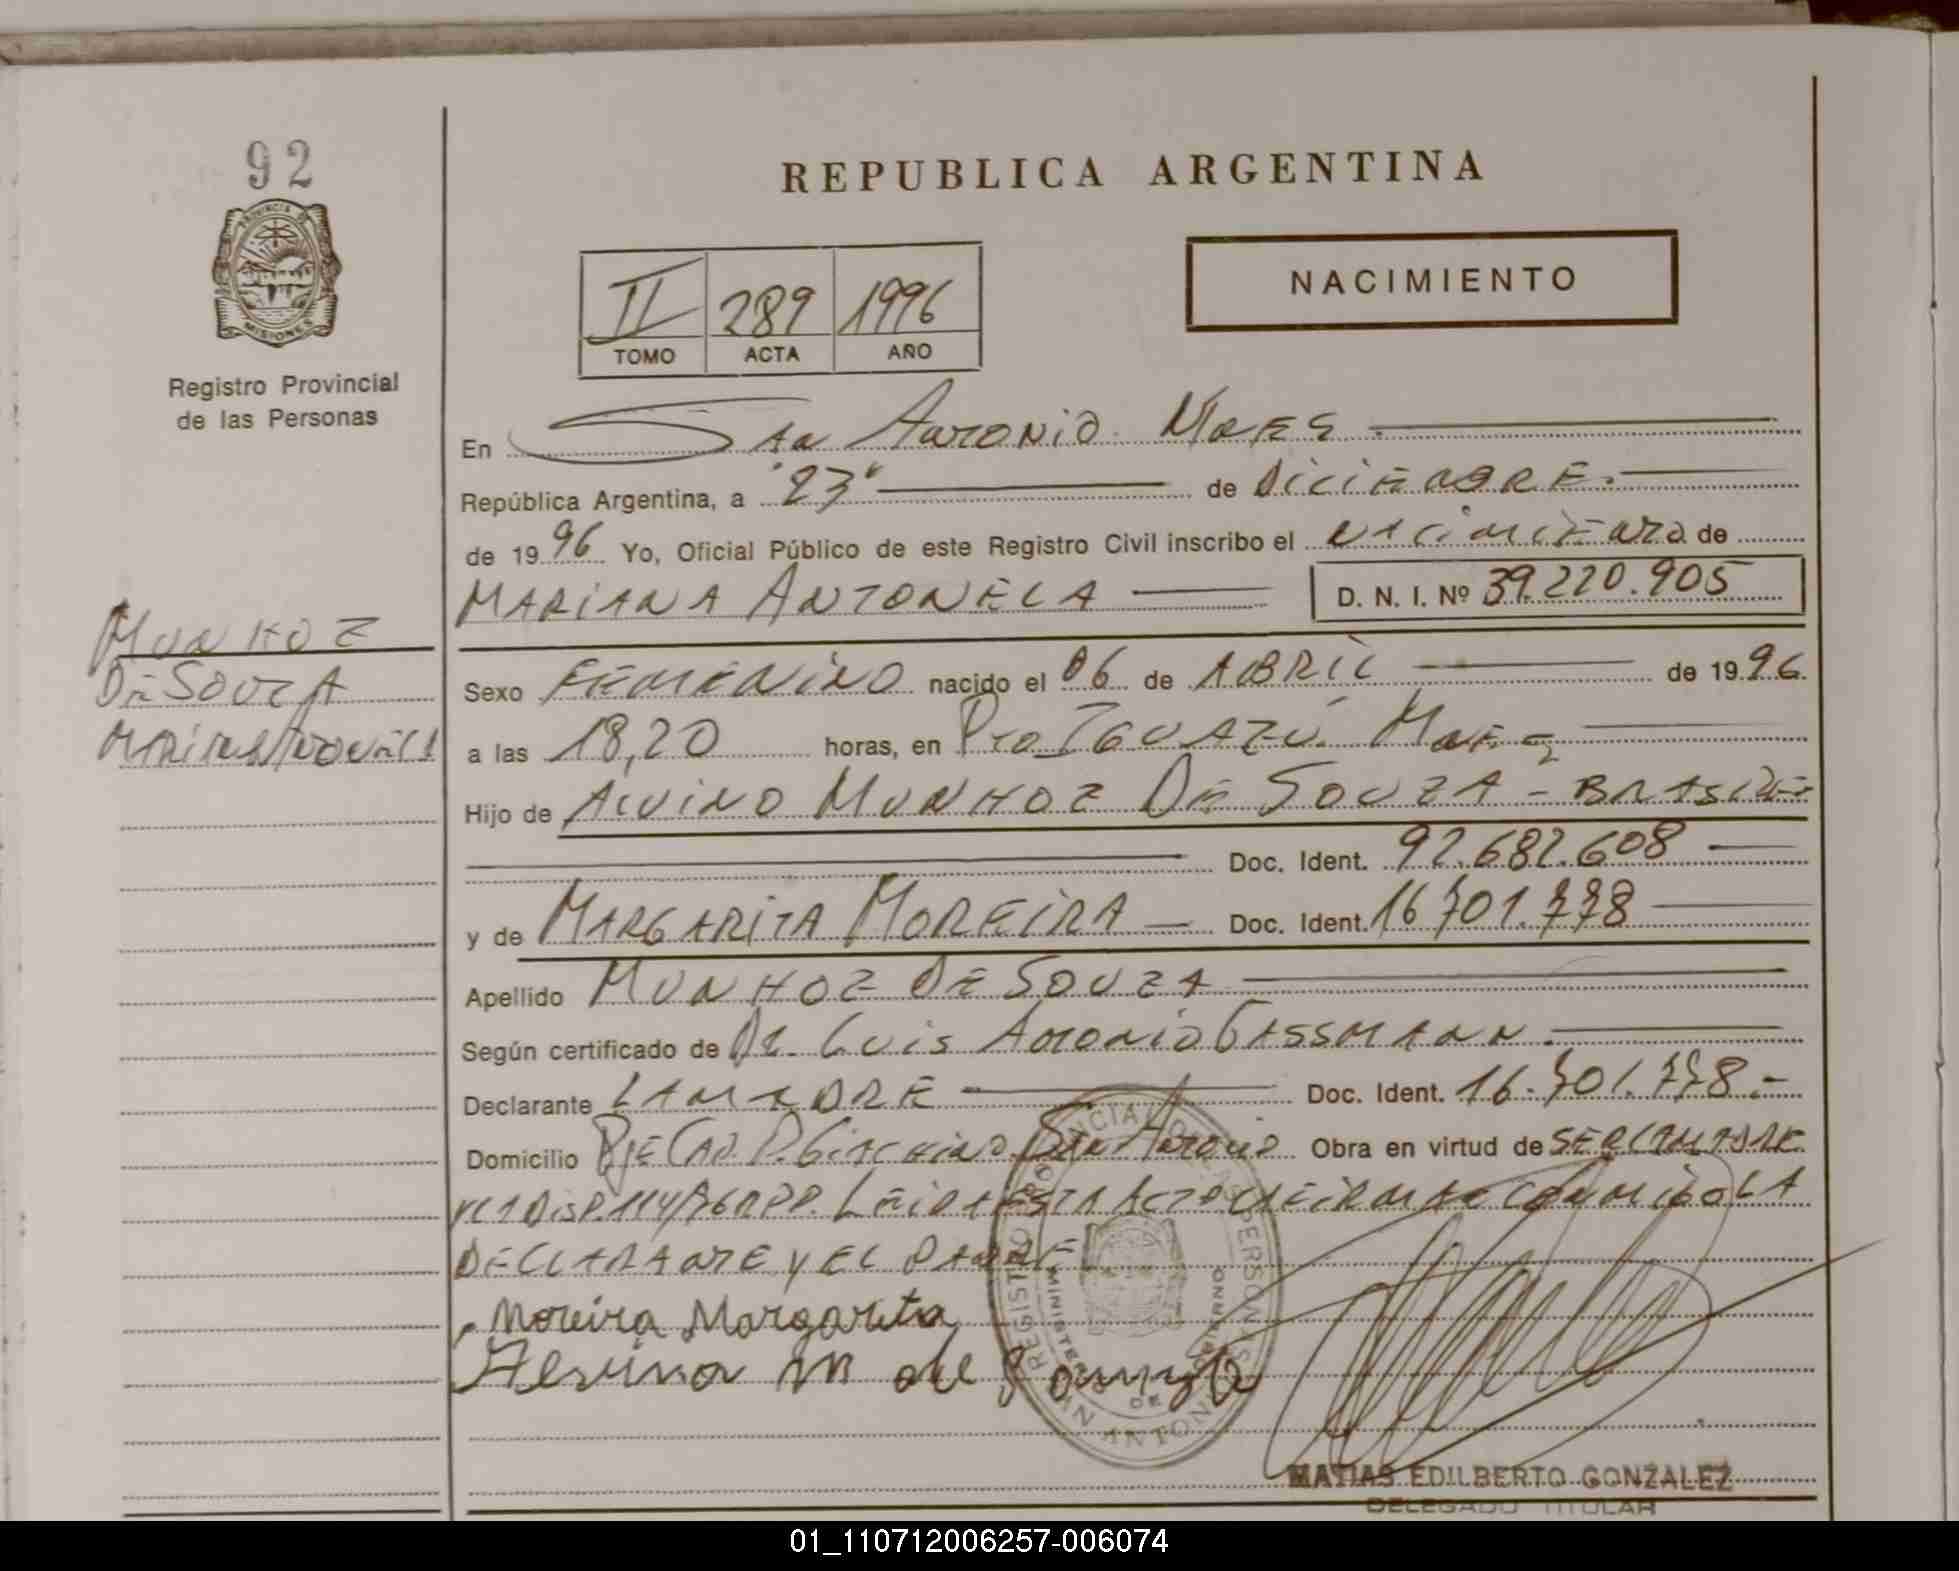 92
PROVINCIA DE
MISIONES
Registro Provincial
de las Personas
MUNHOZ
DE SOUZA
MARIANA ANTONELA
REPUBLICA ARGENTINA
NACIMIENTO
II 289 1996
TOMO ACTA AÑO
En San Antonio Mnes
República Argentina, a "23" de Diciembre.
de 1996 Yo, Oficial Público de este Registro Civil inscribo el nacimiento de
MARIANA ANTONELA D. N. I. Nº 39.220.905
Sexo FEMENINO nacido el 06 de ABRIL de 1996.
a las 18,20 horas, en Pto IGUAZÚ Mnes
Hijo de ALVINO MUNHOZ DE SOUZA - BRASILE-
Doc. Ident. 92.682.608
y de MARGARITA MOREIRA Doc. Ident. 16.701.778
Apellido MUNHOZ DE SOUZA
Según certificado de DR. LUIS ANTONIO GASSMANN.
Declarante LA MADRE Doc. Ident. 16.701.778.-
Domicilio Pje CAP. P. GIACHINO San Antonio Obra en virtud de SER LA MADRE
Y LA DISP. 114/76 DPP. LEIDA ESTA ACTA LA FIRMAN CONMIGO LA
DECLARANTE Y EL PADRE
Moreira Margarita
Alvino m de Souza
REGISTRO PROVINCIAL DE LAS PERSONAS
MINISTERIO DE GOBIERNO
SAN ANTONIO
MATIAS EDILBERTO GONZALEZ
DELEGADO TITULAR
01_110712006257-006074